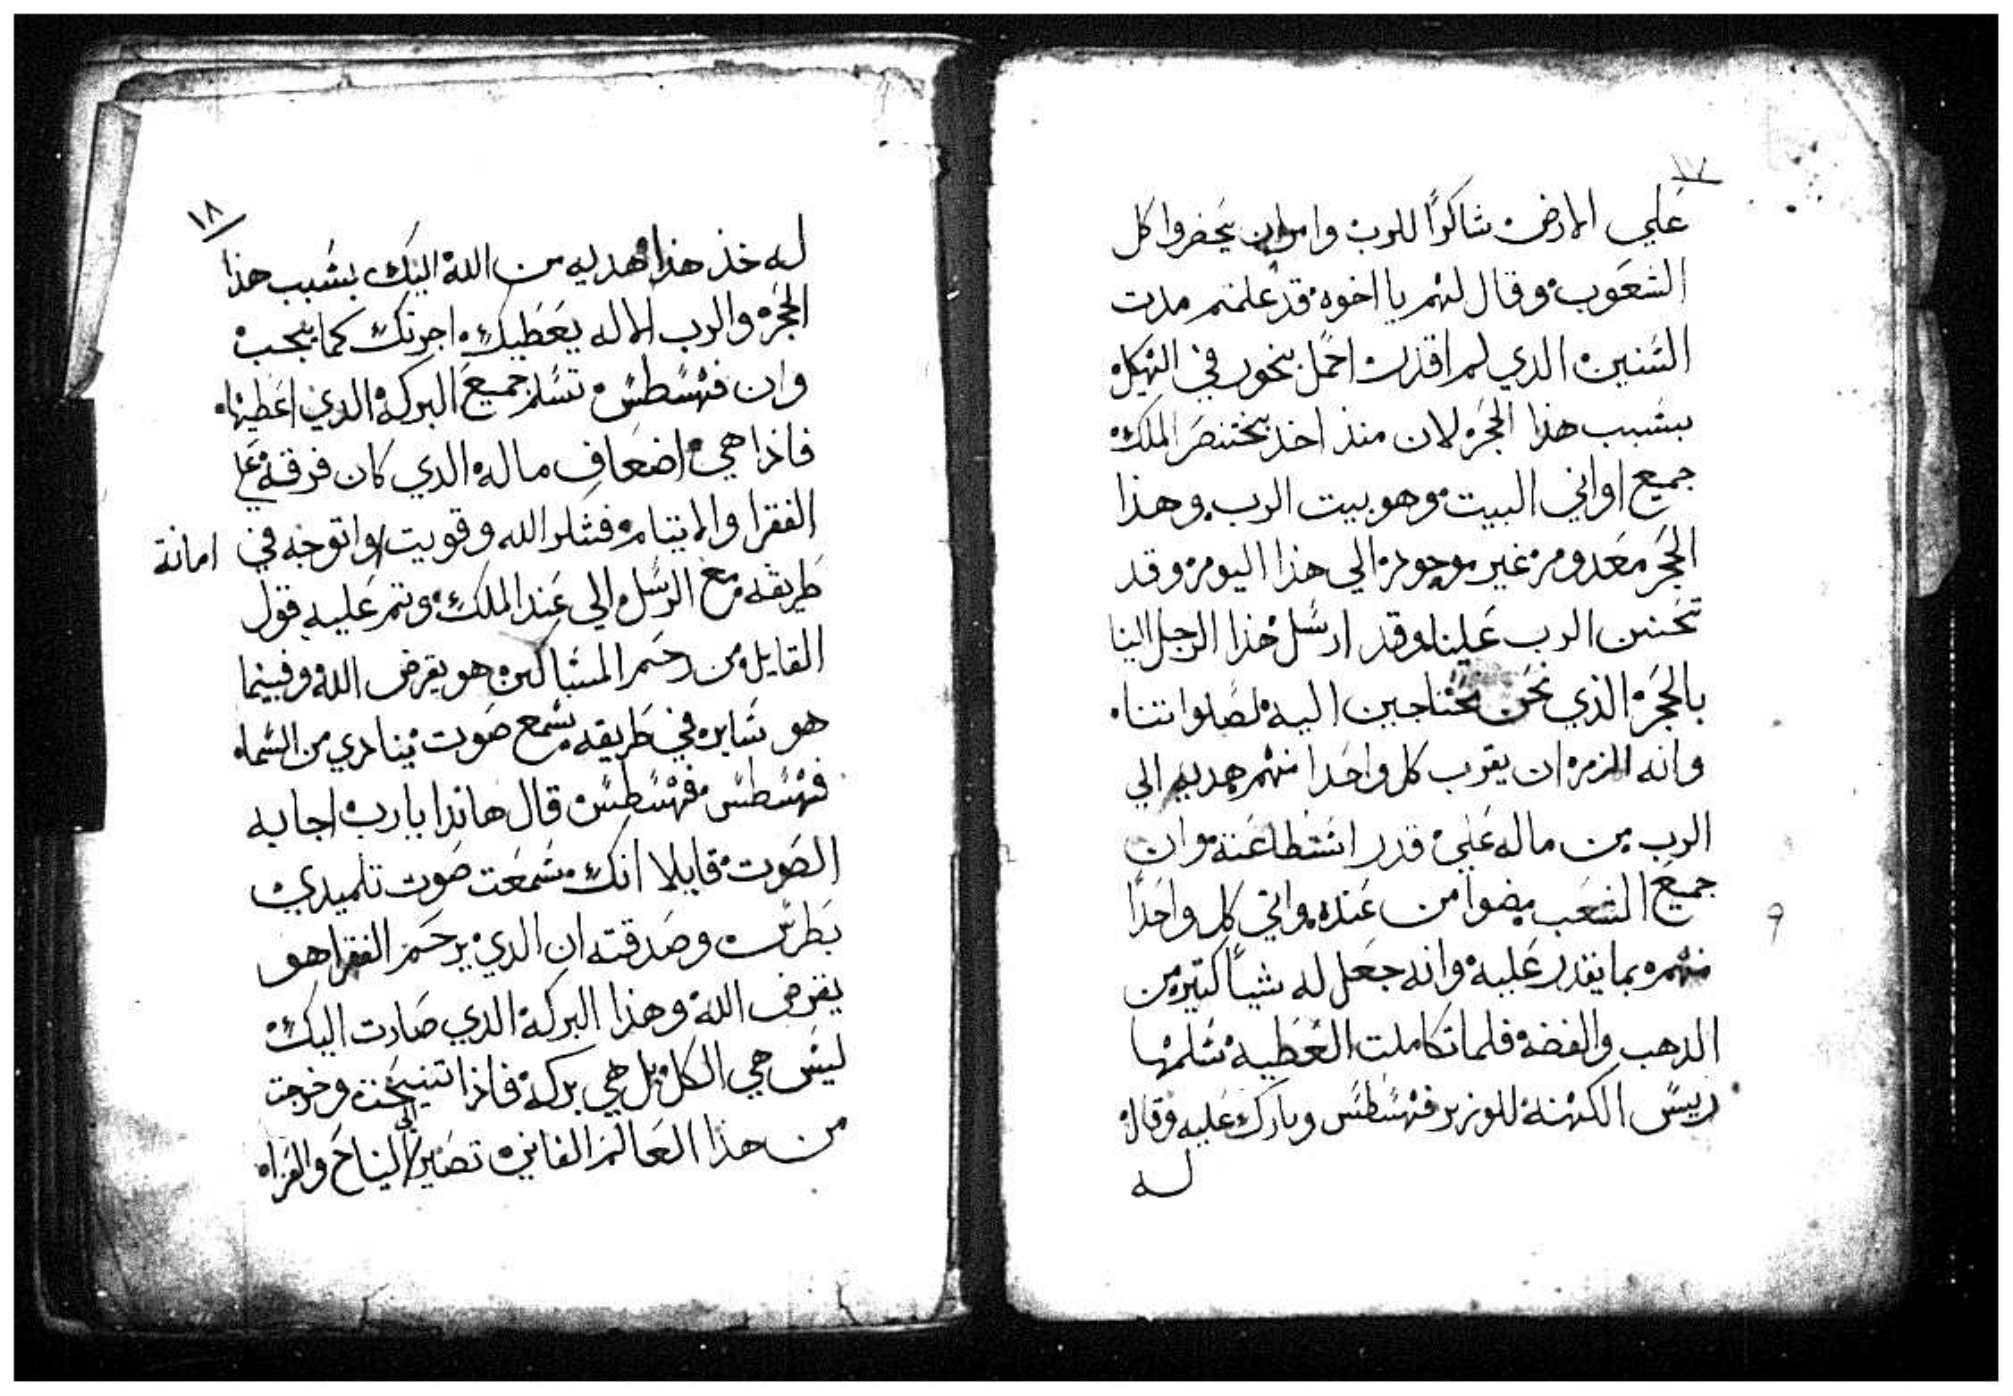 ١٧
علي الارض شاكرًا للرب وامر ان يحضروا كل
الشعوب وقال لهم يا اخوه قد علمتم مدت
السنين الذي لم اقدر احمل بخور في الهيكل
بسبب هذا الحجر لان منذ اخد بختنصر الملك
جميع اواني البيت وهو بيت الرب وهذا
الحجر معدوم غير موجود الي هذا اليوم وقد
تحنن الرب علينا وقد ارسل هذا الرجل الينا
بالحجر الذي نحن محتاجين اليه لصلواتنا
وانه الزم ان يقرب كل واحدا منهم هديه الي
الرب من ماله علي قدر استطاعته وان
جميع الشعب مضوا من عنده واتي كل واحدًا
منهم بما يقدر عليه وانه جعل له شياً كتير من
الدهب والفضه فلما تكاملت العطيه سلمها
رييس الكهنة للوزير فهسطس وبارك عليه وقال
له
١٨
له خذ هذا هديه من الله اليك بسبب هذا
الحجر والرب الاله يعطيك اجرتك كما يجب
وان فهسطس تسلم جميع البركه الدي اعطيها
فاذا هي اضعاف ماله الدي كان فرقه علي
الفقرا والايتام فشكر الله وقويت امانة واتوجه في
طريقه مع الرسل الي عند الملك وتم عليه قول
القايل من رحم المساكين هو يقرض الله وفيما
هو ساير في طريقه سمع صوت ينادي من السماء
فهسطس فهسطس قال هاندا يا رب اجابه
الصوت قايلا انك سمعت صوت تلميدي
بطرس وصدقته ان الدي يرحم الفقرا هو
يقرض الله وهذا البركه الدي صارت اليك
ليس هي الكل بل هي بركه فاذا تنيحت وخرجت
من هذا العالم الفاني تصير الي النياح والعزاء